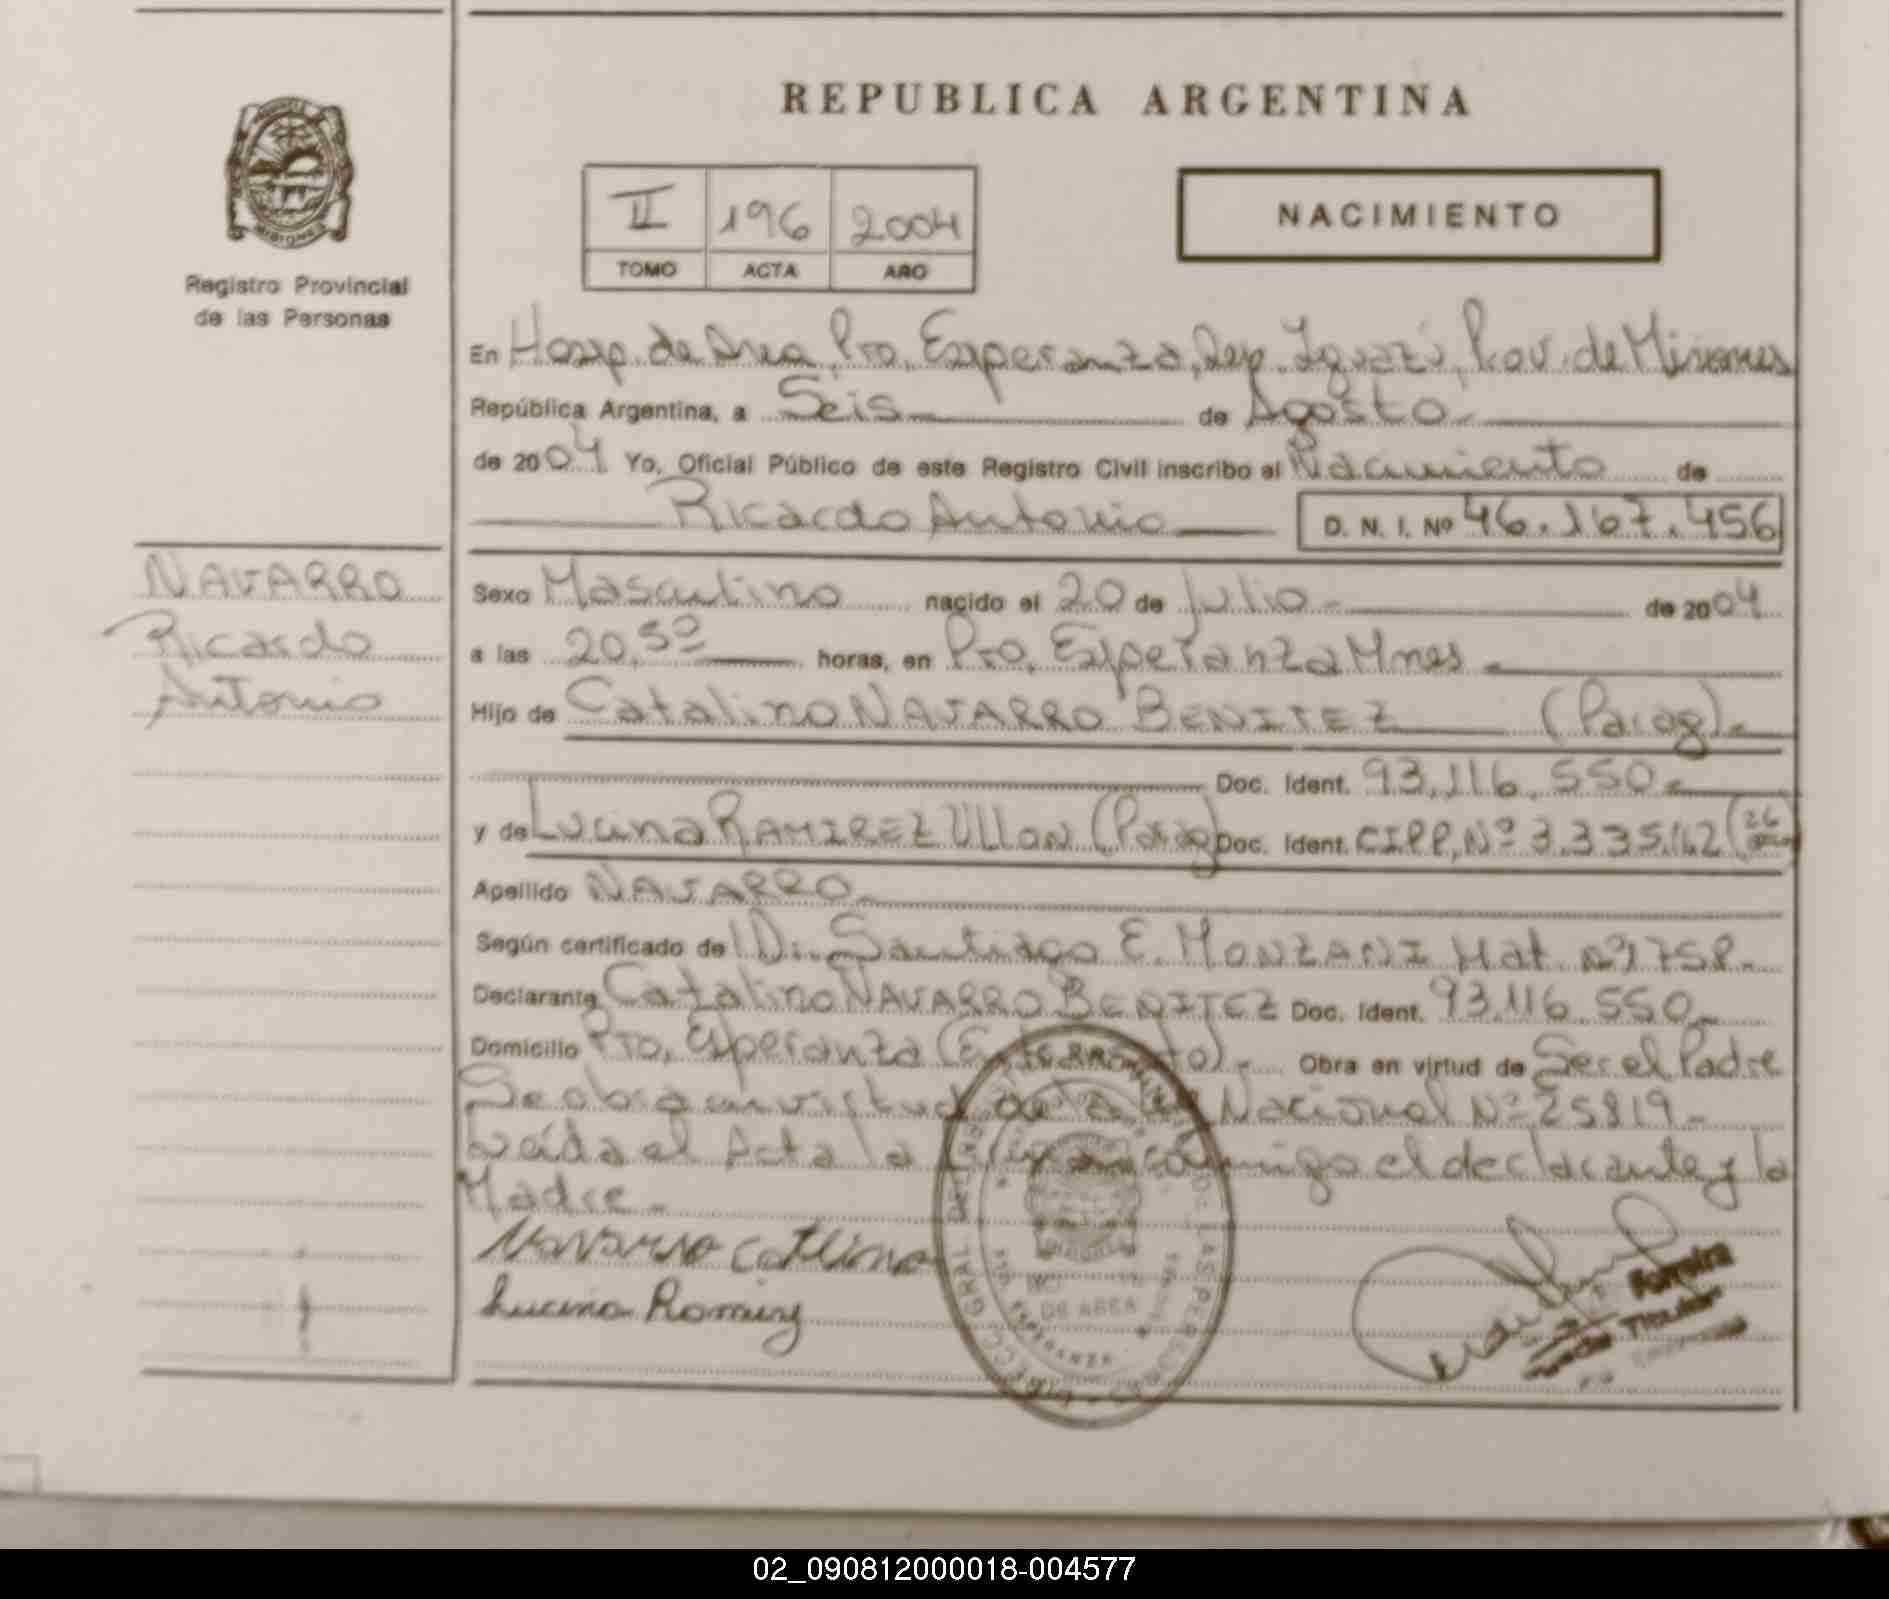 REPUBLICA ARGENTINA
MISIONES
Registro Provincial
de las Personas
II 196 2004
TOMO ACTA AÑO
NACIMIENTO
En Hosp. de Area Pto. Esperanza, Dep. Iguazú, Prov. de Misiones
República Argentina, a Seis de Agosto
de 2004 Yo, Oficial Público de este Registro Civil inscribo el Nacimiento de
Ricardo Antonio D. N. I. Nº 46.167.456
NAVARRO
Ricardo
Antonio
Sexo Masculino nacido el 20 de Julio de 2004
a las 20,50 horas, en Pto. Esperanza Mnes
Hijo de Catalino NAVARRO BENITEZ (Parag)
Doc. Ident. 93.116.550
y de Lucina RAMIREZ ULLON (Parag) Doc. Ident. CIPP, Nº 3.335.142 (26
Apellido NAVARRO
Según certificado de Dr. Santiago E. MONZANI Mat.
Declarante Catalino NAVARRO BENITEZ Doc. Ident. 93.116.550
Domicilio Pto. Esperanza Obra en virtud de Ser el Padre
Se obra en virtud de la Ley Nacional Nº 25819
Leída el Acta la firman conmigo el declarante y la
Madre
Navarro Catlino
Lucina Ramirez
DE AREA
Ferreira
Titular
02_090812000018-004577